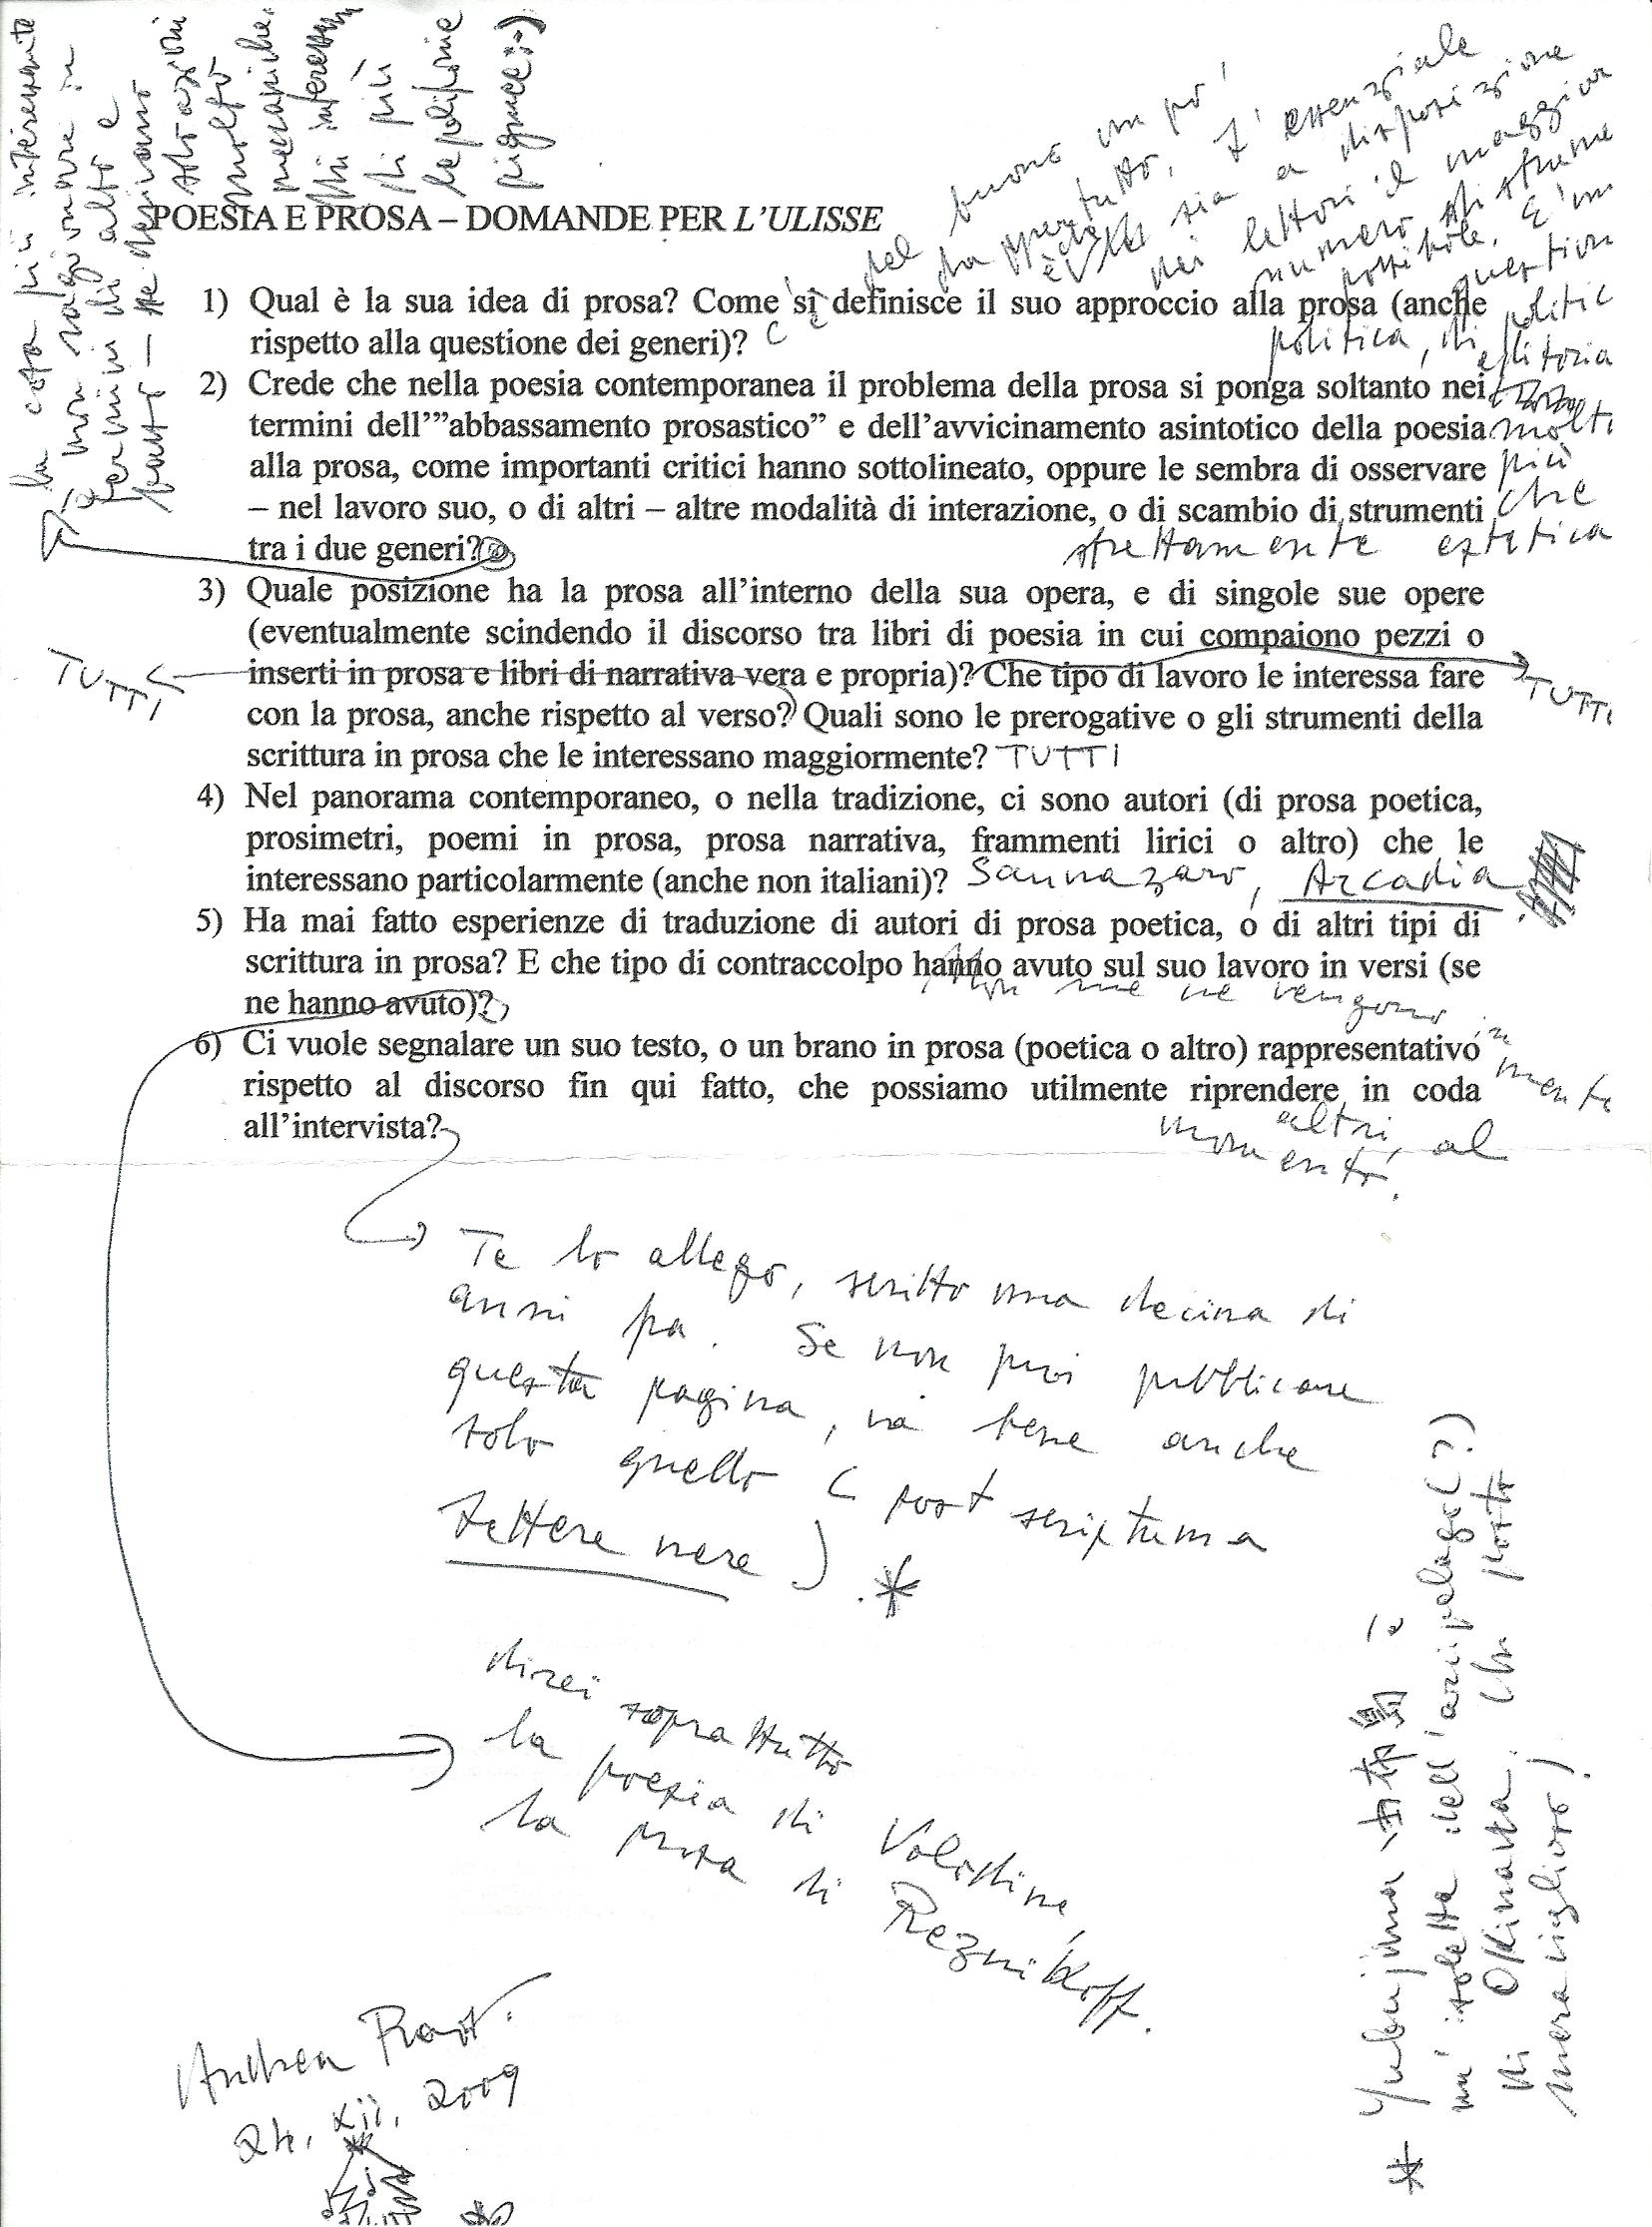 POESIA E PROSA – DOMANDE PER L'ULISSE
1) Qual è la sua idea di prosa? Come si definisce il suo approccio alla prosa (anche
rispetto alla questione dei generi)?
c'è
del buono un po'
dappertutto. L'essenziale
è che sia a disposizione
dei lettori il maggior
numero di
possibile. E' un
question
politica, di politic
editoria
molto
più
che
strettamente estetica
2) Crede che nella poesia contemporanea il problema della prosa si ponga soltanto nei
termini dell'”abbassamento prosastico” e dell'avvicinamento asintotico della poesia
alla prosa, come importanti critici hanno sottolineato, oppure le sembra di osservare
– nel lavoro suo, o di altri – altre modalità di interazione, o di scambio di strumenti
tra i due generi?
la cosa più interessante
è non ragionare in
termini di alto e
basso — ne derivano
astrazioni
molto
meccaniche.
Mi interessano
di più
le
:-)
3) Quale posizione ha la prosa all'interno della sua opera, e di singole sue opere
(eventualmente scindendo il discorso tra libri di poesia in cui compaiono pezzi o
inserti in prosa e libri di narrativa vera e propria)? Che tipo di lavoro le interessa fare
con la prosa, anche rispetto al verso? Quali sono le prerogative o gli strumenti della
scrittura in prosa che le interessano maggiormente? TUTTI
TUTTI
TUTTI
4) Nel panorama contemporaneo, o nella tradizione, ci sono autori (di prosa poetica,
prosimetri, poemi in prosa, prosa narrativa, frammenti lirici o altro) che le
interessano particolarmente (anche non italiani)? Sannazaro, Arcadia
5) Ha mai fatto esperienze di traduzione di autori di prosa poetica, o di altri tipi di
scrittura in prosa? E che tipo di contraccolpo hanno avuto sul suo lavoro in versi (se
ne hanno avuto)?
Non me ne vengono
in
mente
altri, al
momento.
6) Ci vuole segnalare un suo testo, o un brano in prosa (poetica o altro) rappresentativo
rispetto al discorso fin qui fatto, che possiamo utilmente riprendere in coda
all'intervista?
Te lo allego, scritto una decina di
anni fa. Se non puoi pubblicare
questa pagina, va bene anche
solo quello (post scriptum a
Lettere nere). *
direi soprattutto
la poesia di Volodine,
la prosa di Reznikoff.
Andrea Raos.
24, xii, 2009
* Yubujima 由布島 è
un'isoletta dell'arcipelago (?)
di Okinawa. Un posto
meraviglioso!